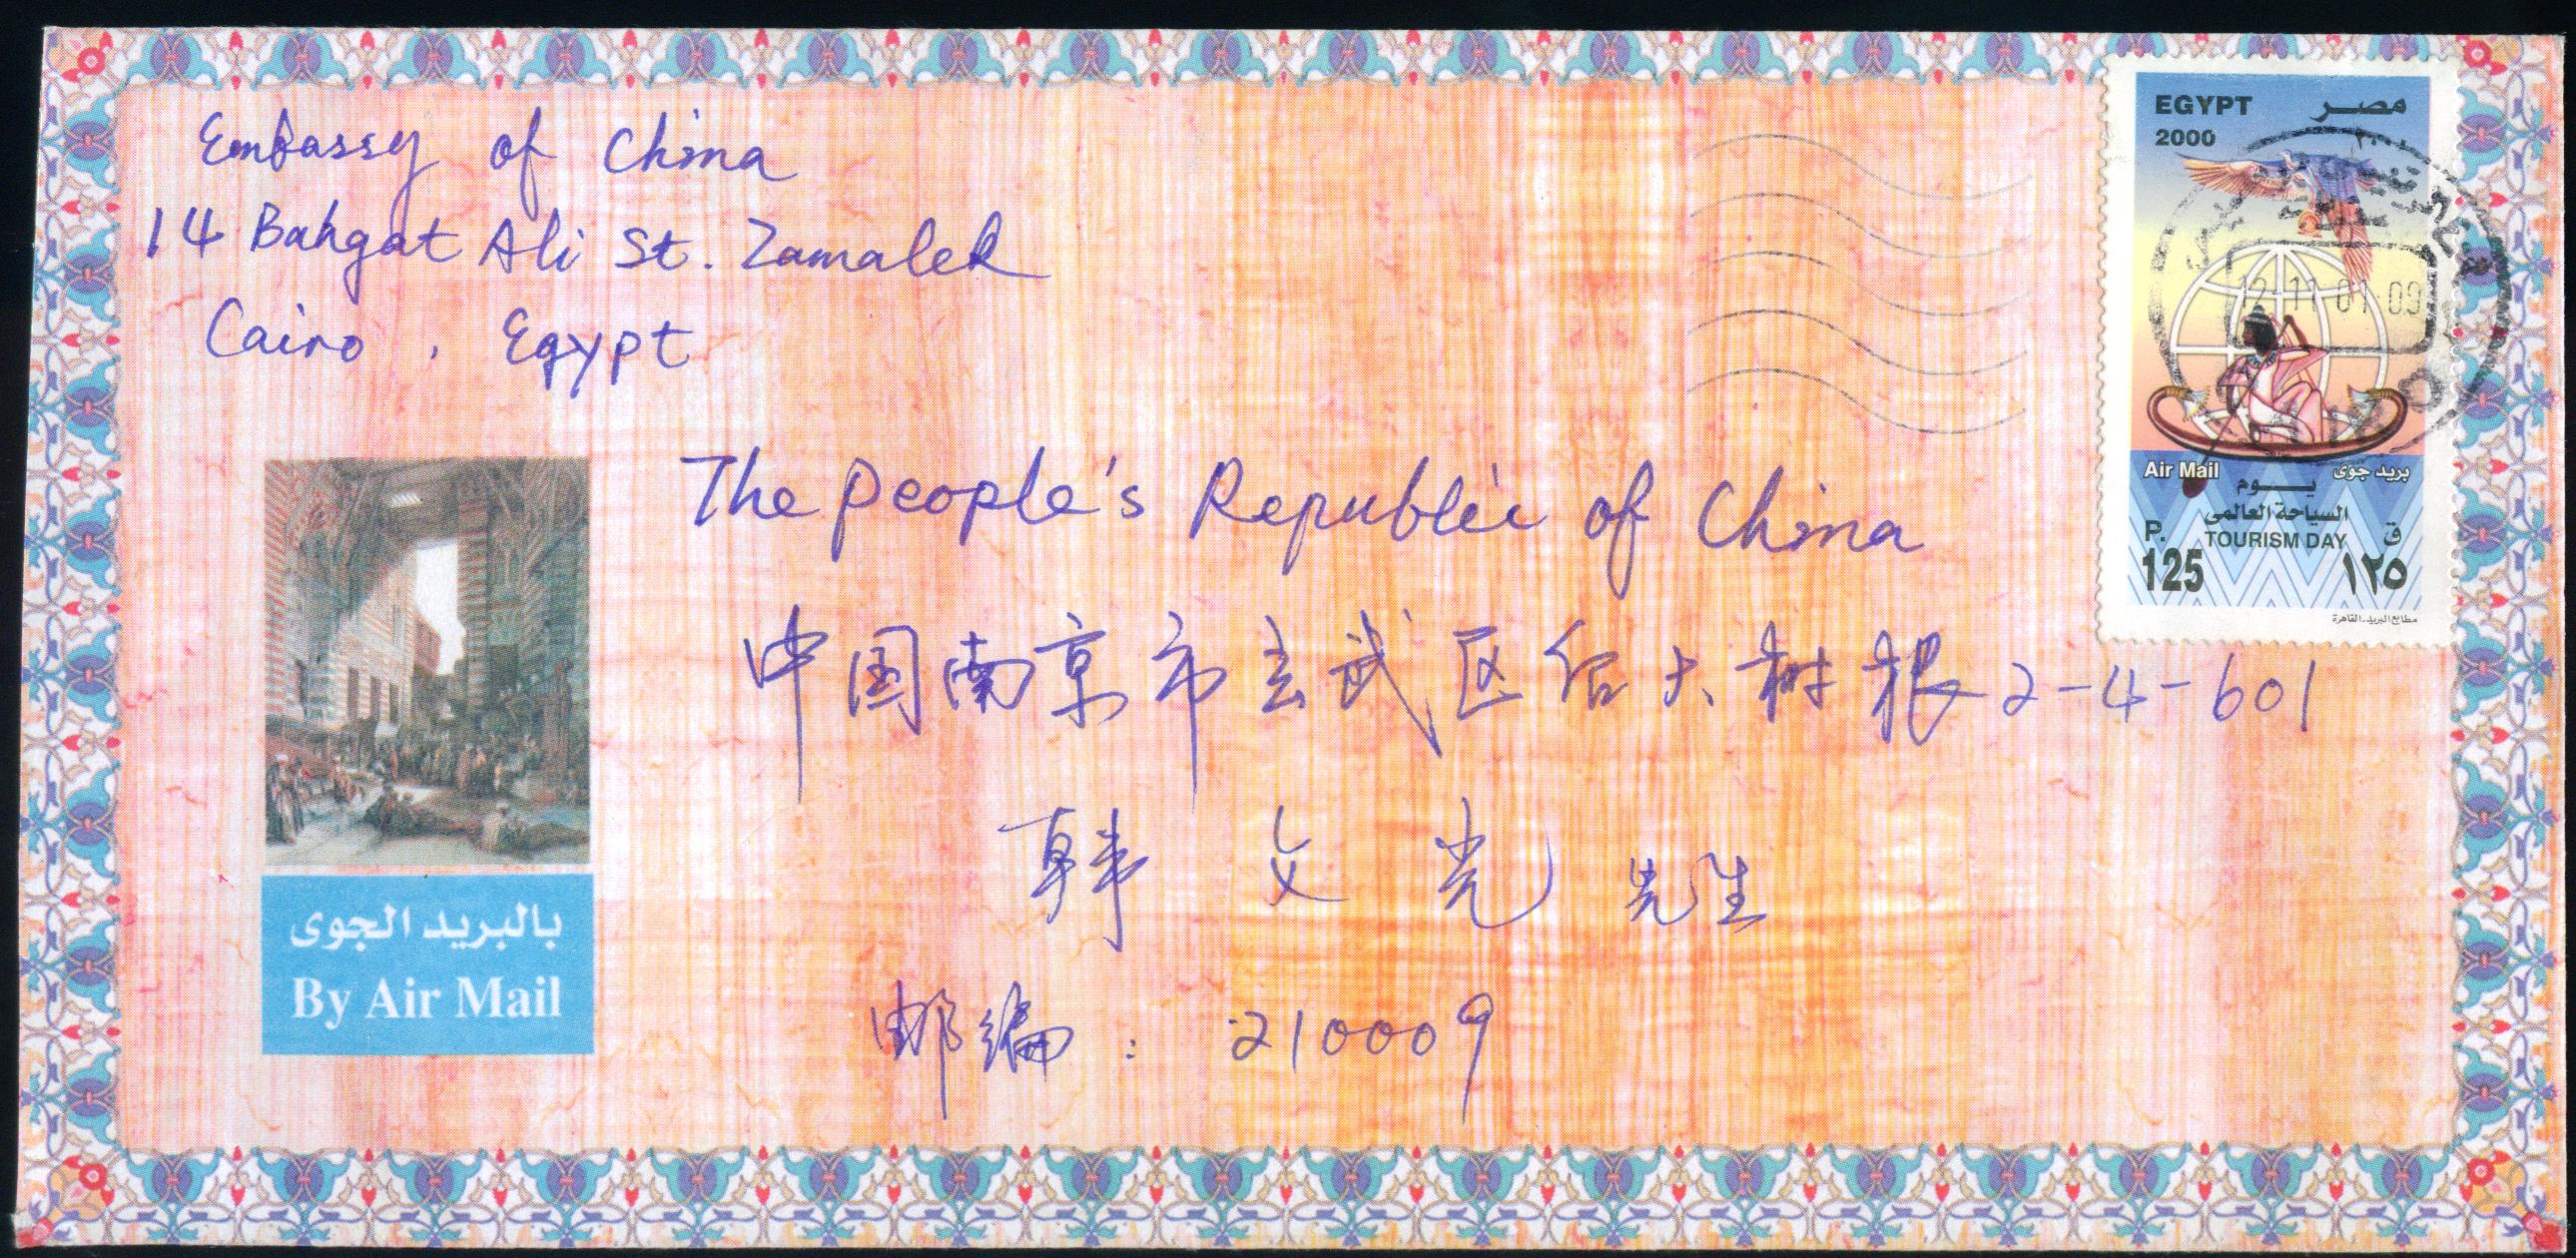 Embassy of China
14 Bahgat Ali St. Zamalek
Cairo, Egypt
EGYPT مصر
2000 ٢٠٠٠
12.11.01 09
Air Mail بريد جوى
يوم
السياحة العالمى
TOURISM DAY
P. ق
125 ١٢٥
مطابع البريد - القاهرة
The People's Republic of China
中国南京市玄武区大树根2-4-601
韩文光 先生
邮编: 210009
بالبريد الجوى
By Air Mail